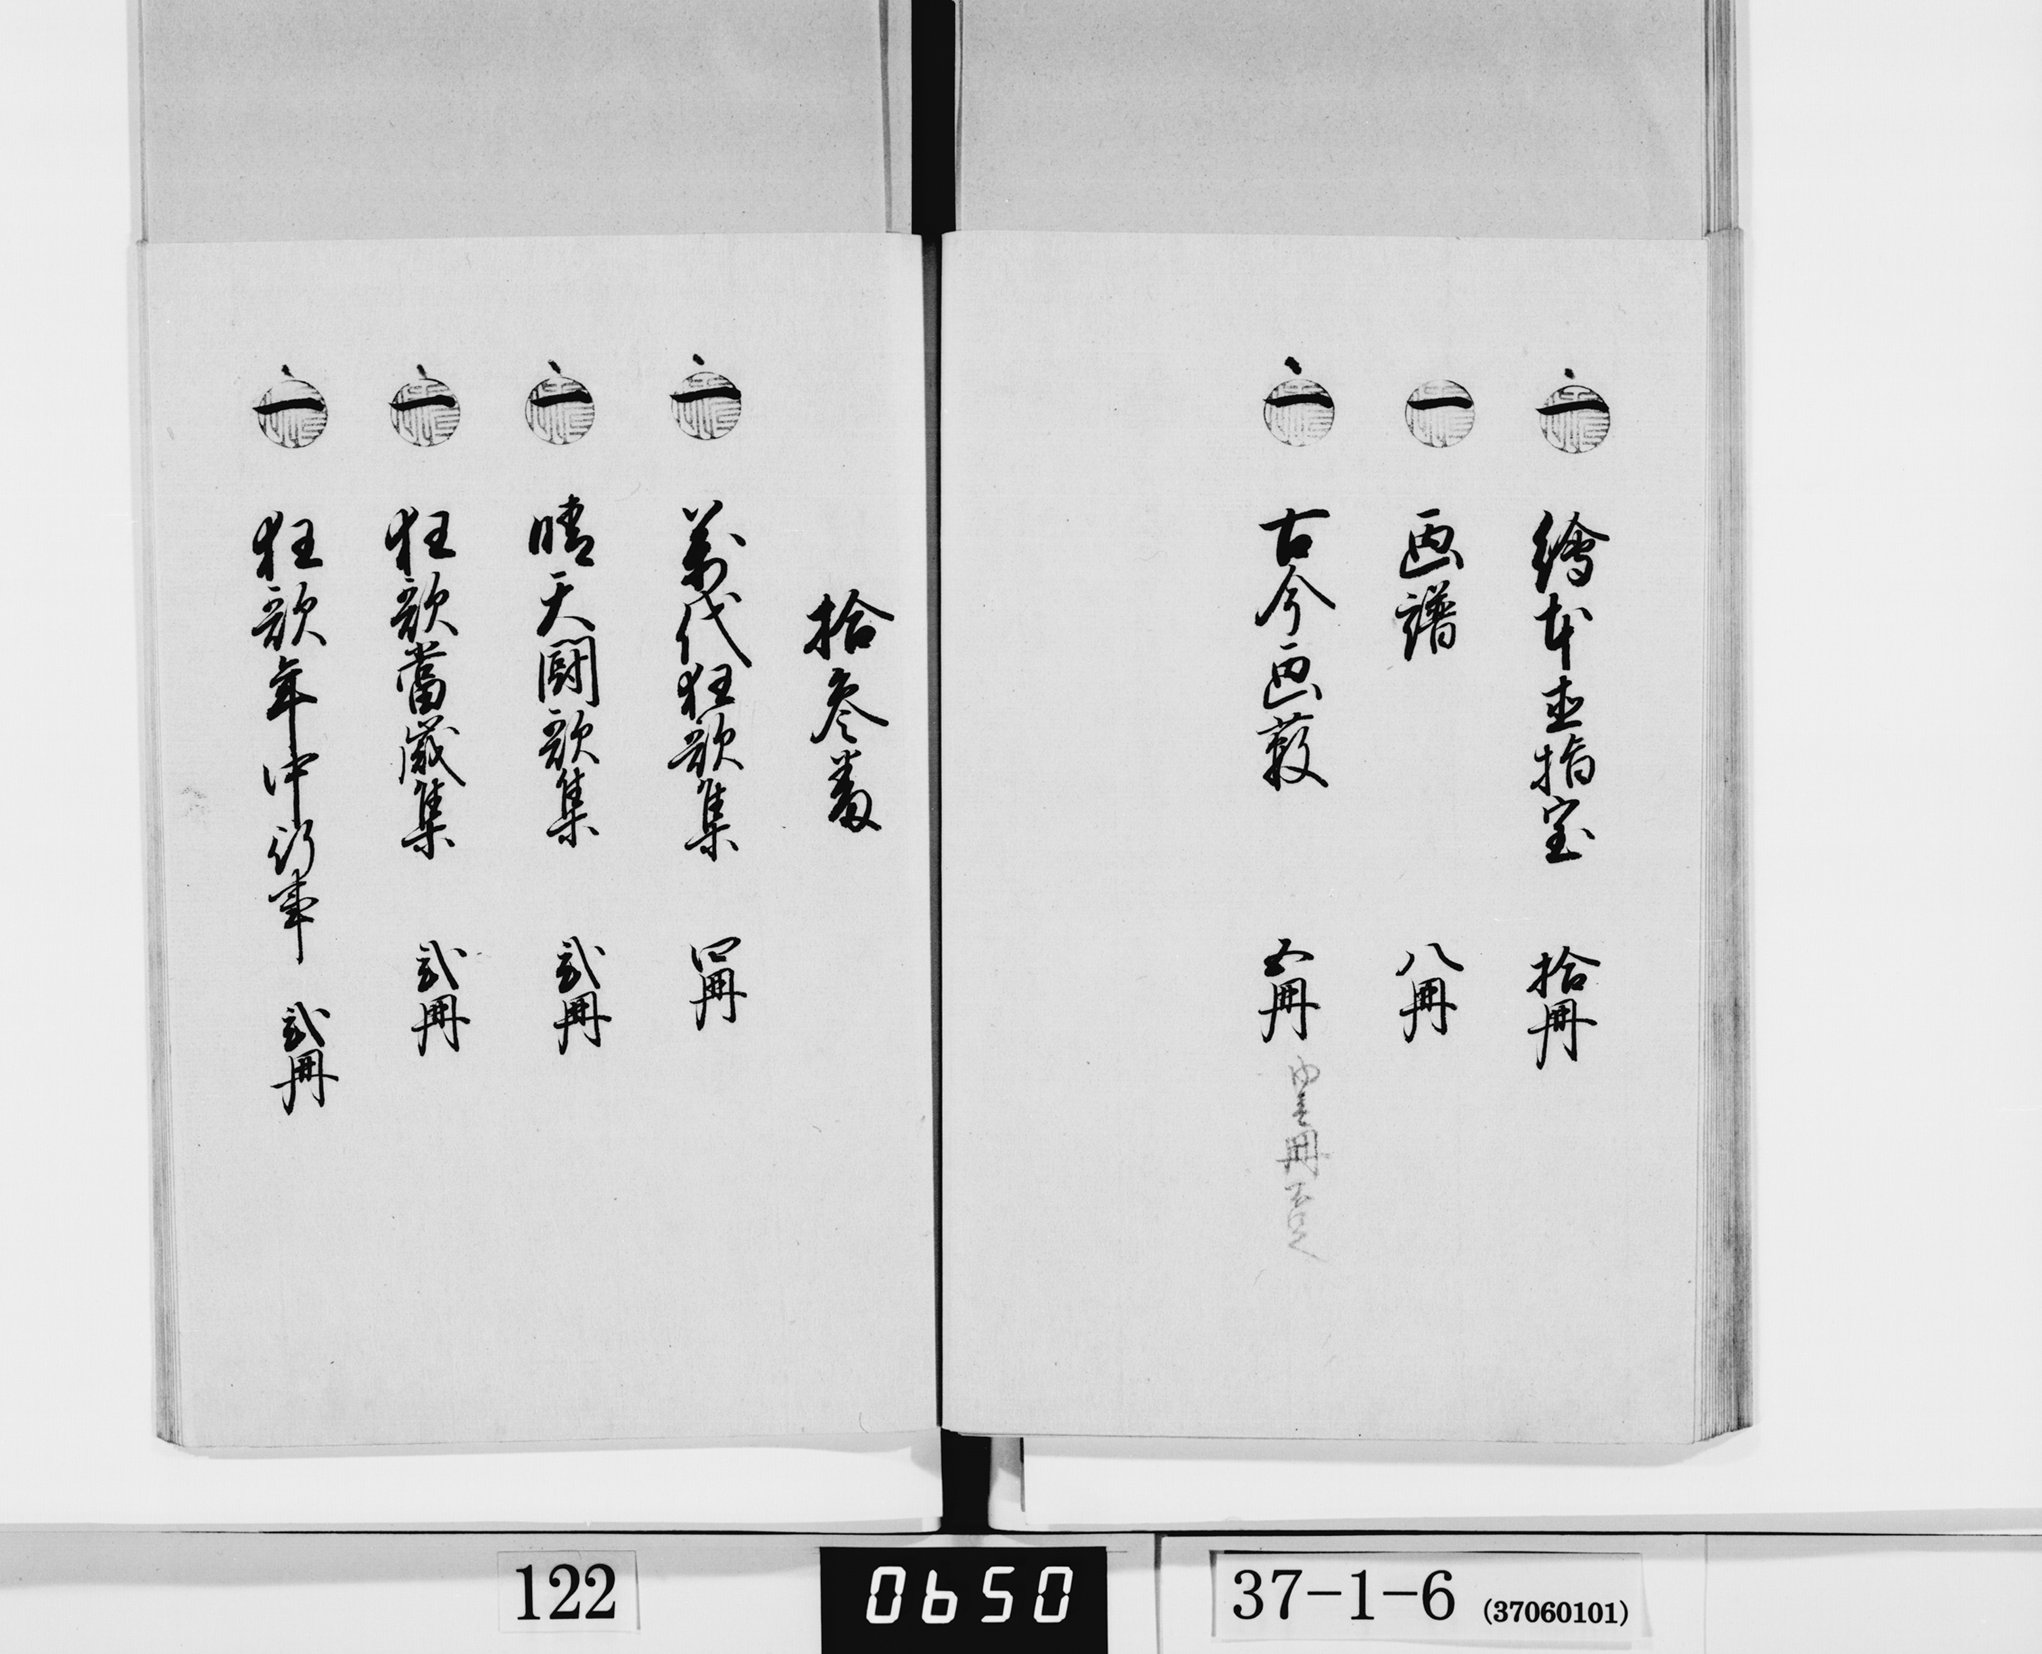 一 繪本直指宝 拾冊
一 画譜 八冊
一 古今画薮 五冊 内壱冊不足
拾参番
一 萬代狂歌集 四冊
一 晴天闘歌集 弐冊
一 狂歌當歳集 弐冊
一 狂歌年中行事 弐冊
122
0650
37-1-6 (37060101)